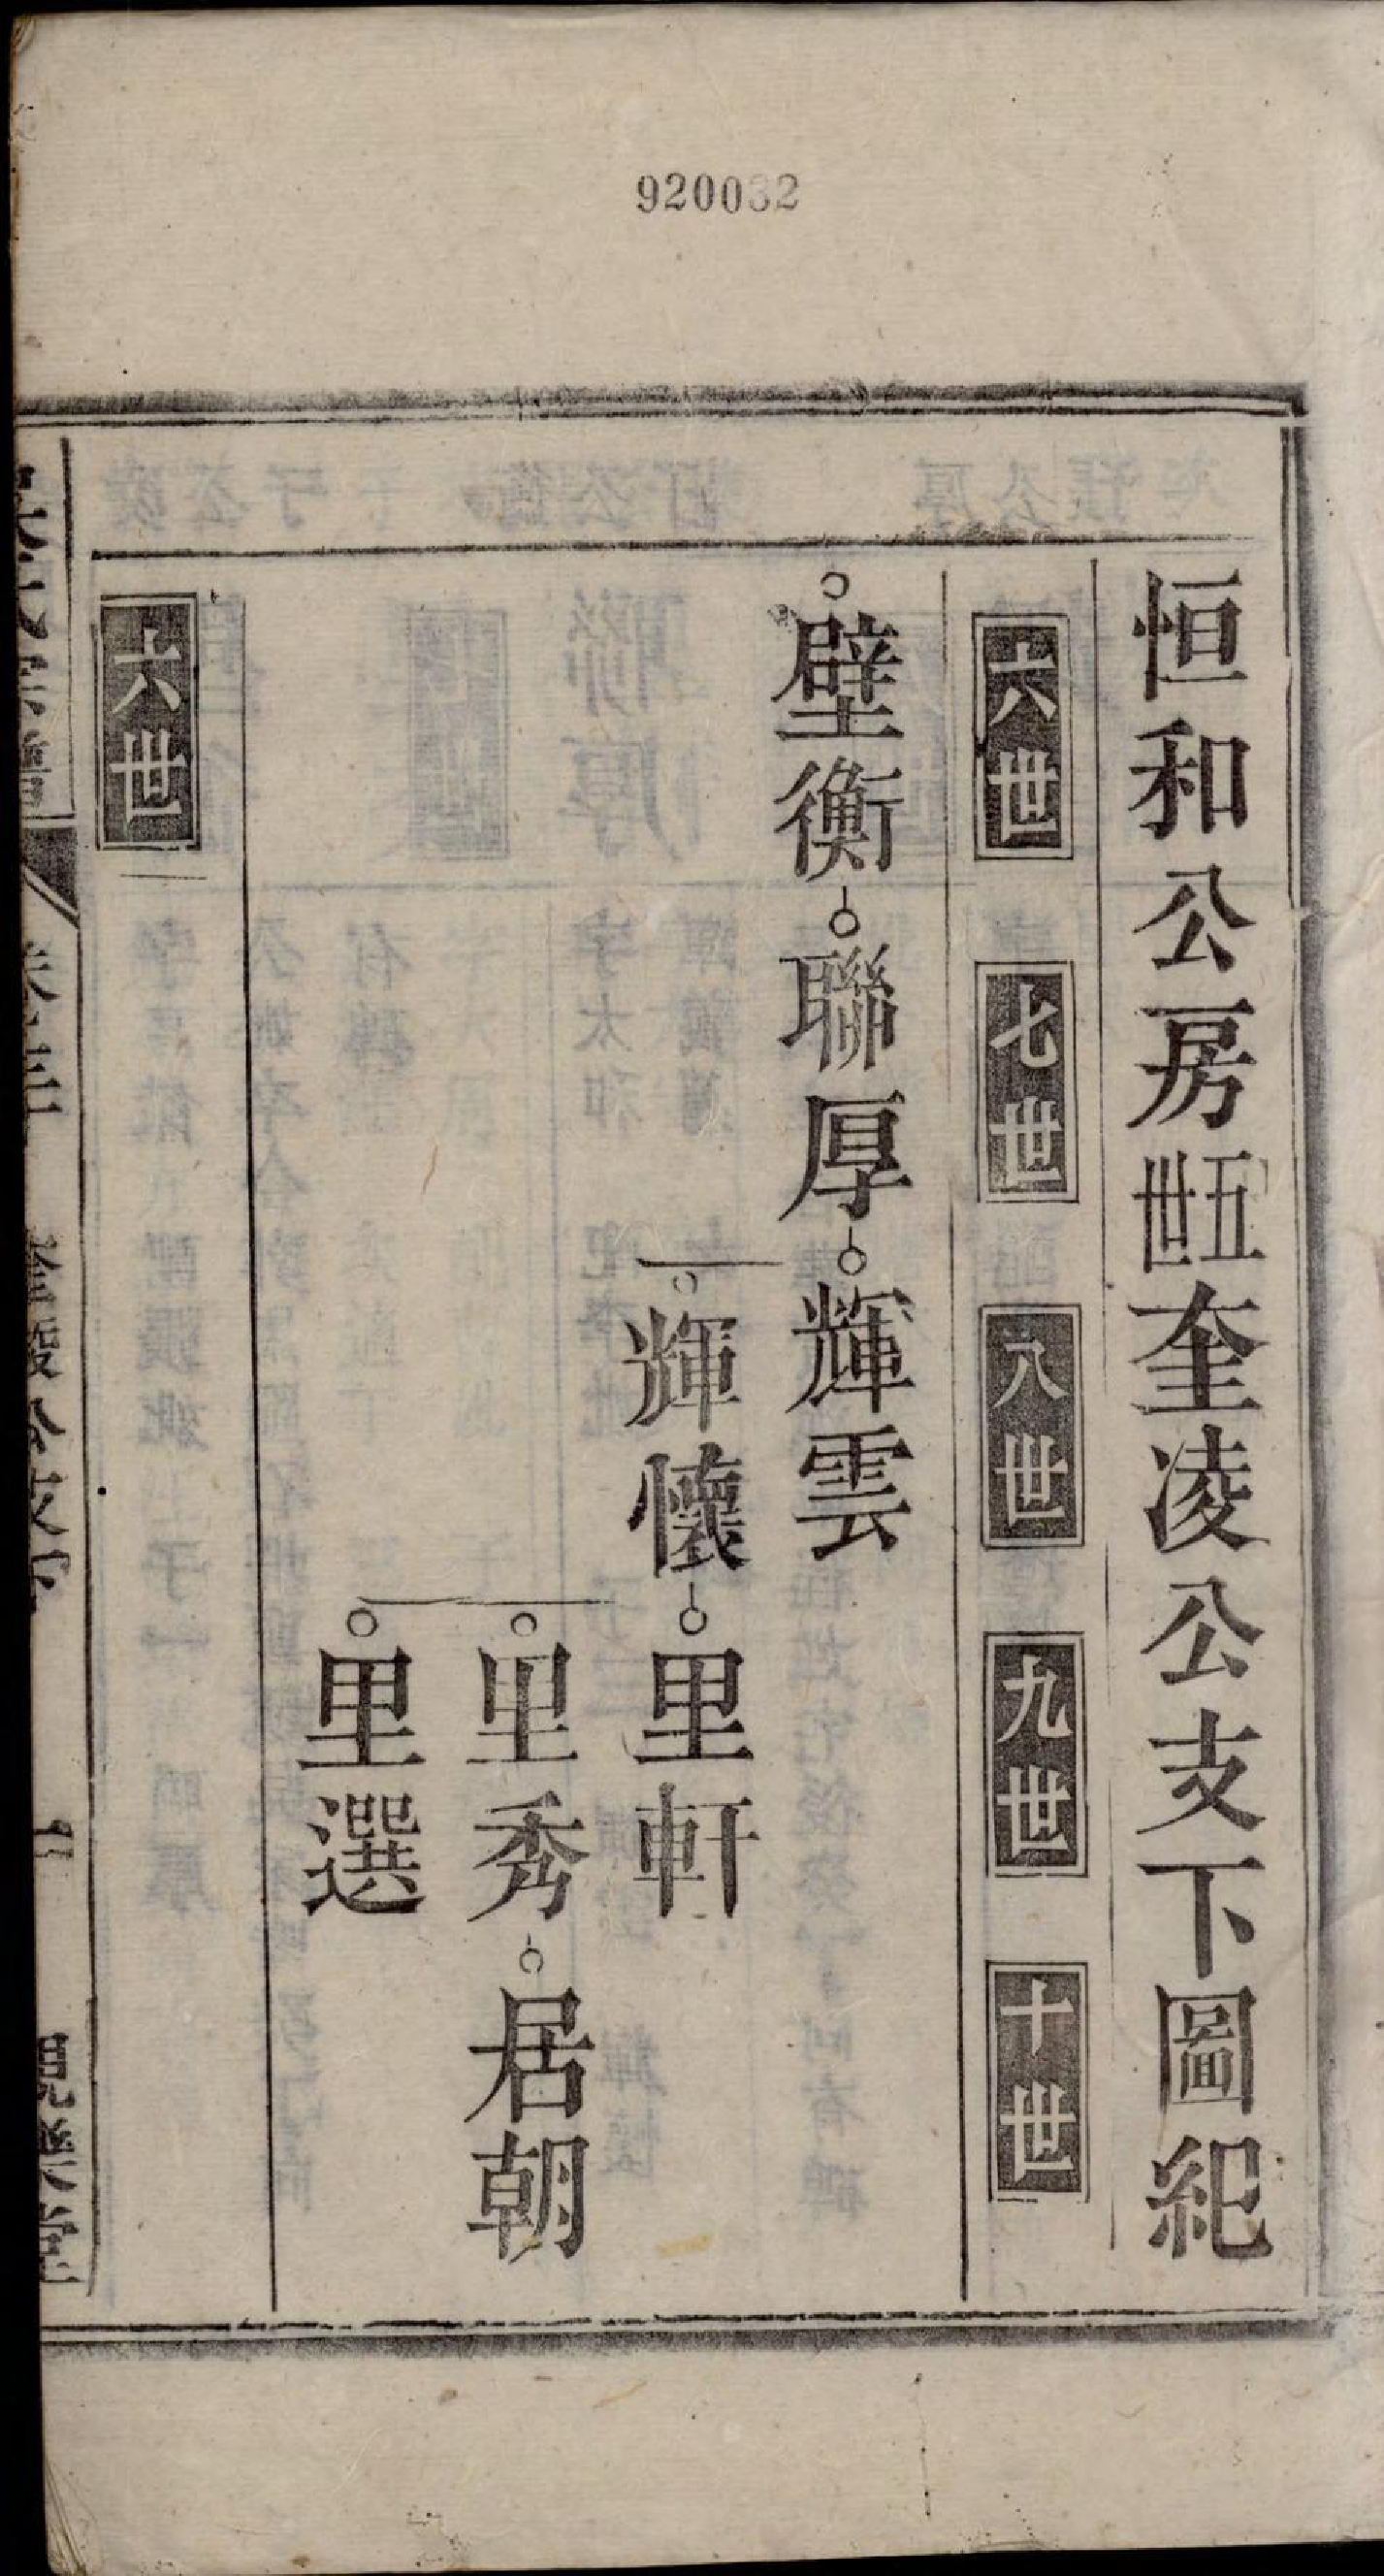 920032
恒和公房五世奎凌公支下圖紀
六世
七世
八世
九世
十世
壁衡
聯厚
輝雲
輝懷
里軒
里秀
居朝
里選
六世